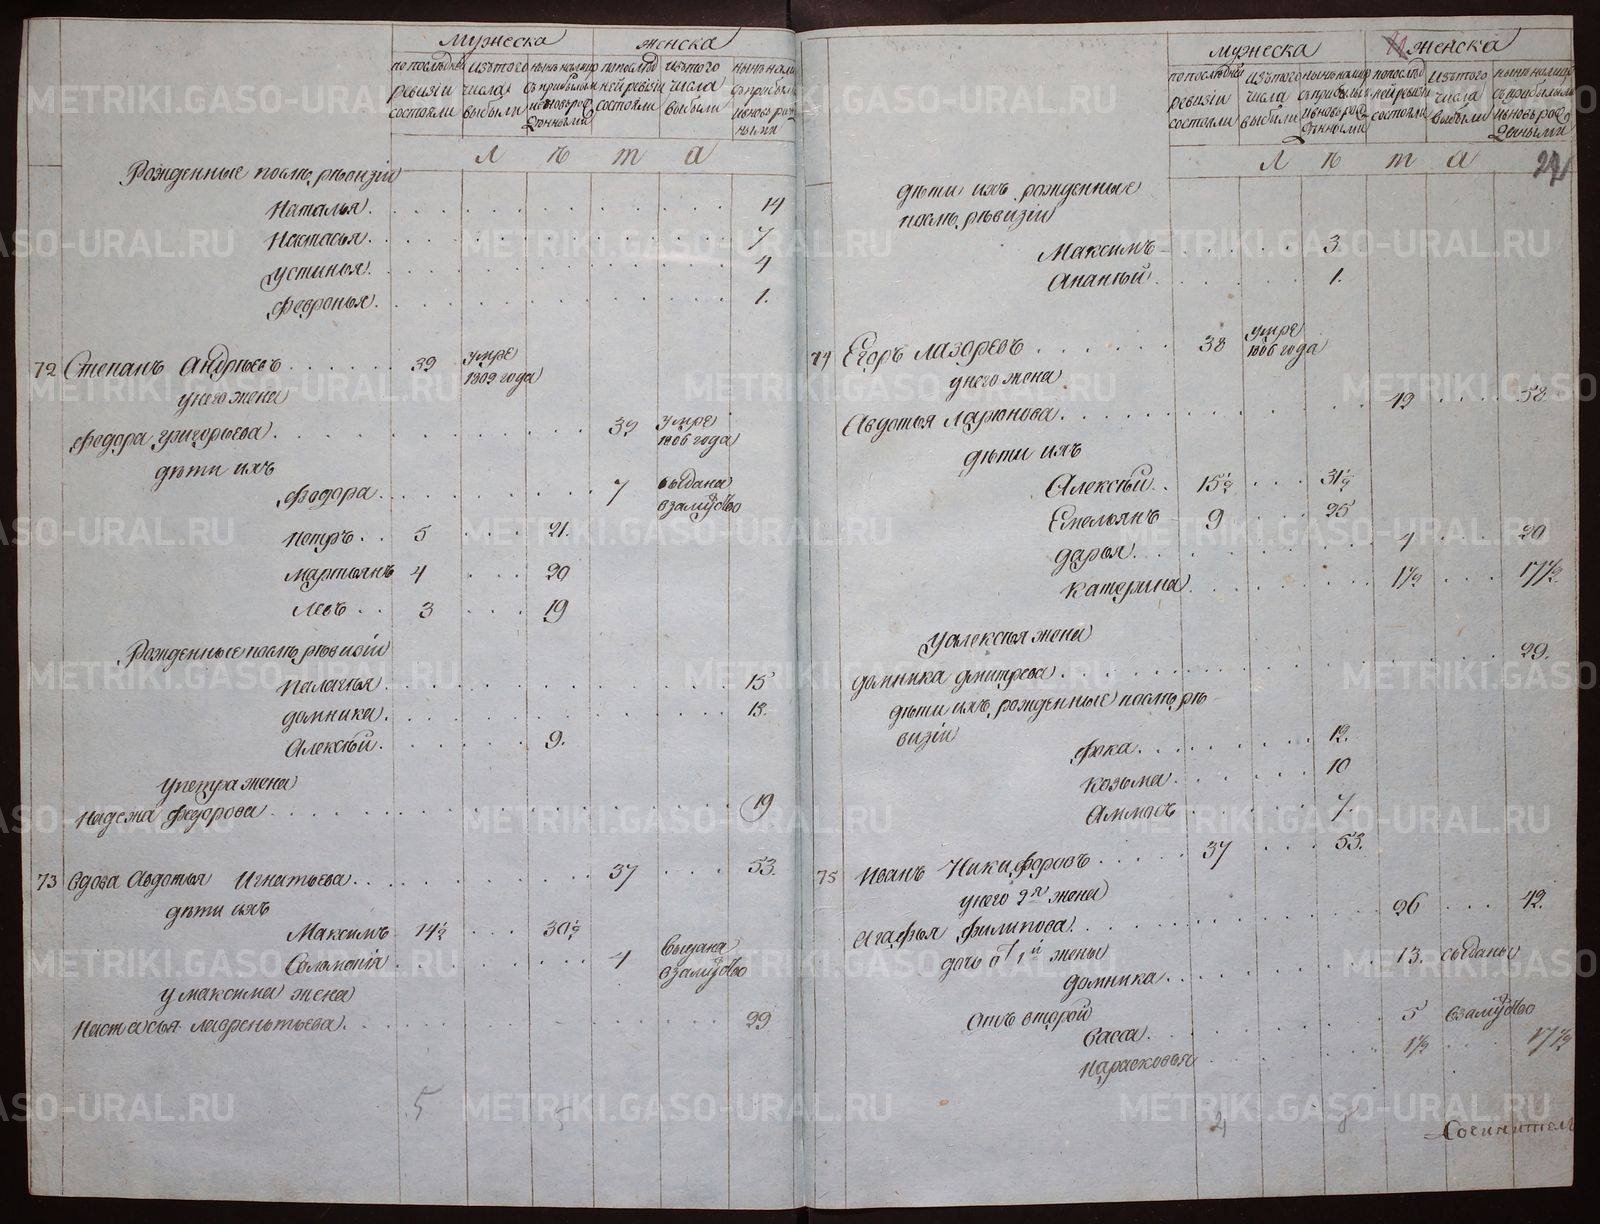 мужеска женска
по последней ревизии состояли
изътого числа выбыли
нынѣ налицо съ прибылыми и вновь рожденными
по последней ревизии состояли
изътого числа выбыли
нынѣ налицо съ прибылыми и вновь рожденными
л ѣ т а
Рожденные послѣ рѣвизіи
Наталья 14
Настасья 7
устинья 4
февронья 1.
72 Степанъ Андрѣевъ 39 умре 1809 года
унего жена
федора григорьева 39 умре 1806 года
дѣти ихъ
федора 7 выдана взамужство
Петръ 5 21.
мартьянъ 4 20
левъ 3 19
Рожденные послѣ рѣвизіи
палагья 15
домника 13.
Алексѣй 9.
упетра жена
надежа федорова 19
73 вдова Авдотья Игнатьева 37 53.
дѣти ихъ
Максимъ 14½ 30½
Соломонія 4 выдана взамужство
у максима жена
Настасья лаврентьева 29
5 5
мужеска женска
по последней ревизіи состояли
изътого числа выбыли
нынѣ налицо съ прибылыми и вновь рожденными
по последней ревизіи состояли
изътого числа выбыли
нынѣ налицо съ прибылыми и вновь рожденными
л ѣ т а
дѣти ихъ рожденные
послѣ рѣвизіи
Максимъ 3.
Ананьй 1.
74 Егоръ лазоревъ 38 умре 1806 года
унего жена
Авдотья Ларионова 42 58
дѣти ихъ
Алексѣй 15½ 31½
Емельянъ 9 25
дарья 4 20
Катерина 1½ 17½.
Уалексѣя жена
домника дмитрева 29.
дѣти ихъ рожденные послѣ рѣ
визіи
фока 12.
козьма 10
Аммосъ 7.
75 Иванъ Никифоровъ 37 53.
унего 2я жена
Агафья филипова 26 42.
дочь от 1й жены
домника 13. выданы
Отъ второй
васса 5 взамужство
парасковья 1½ 17½
4 8
Сочинител
METRIKI.GASO-URAL.RU